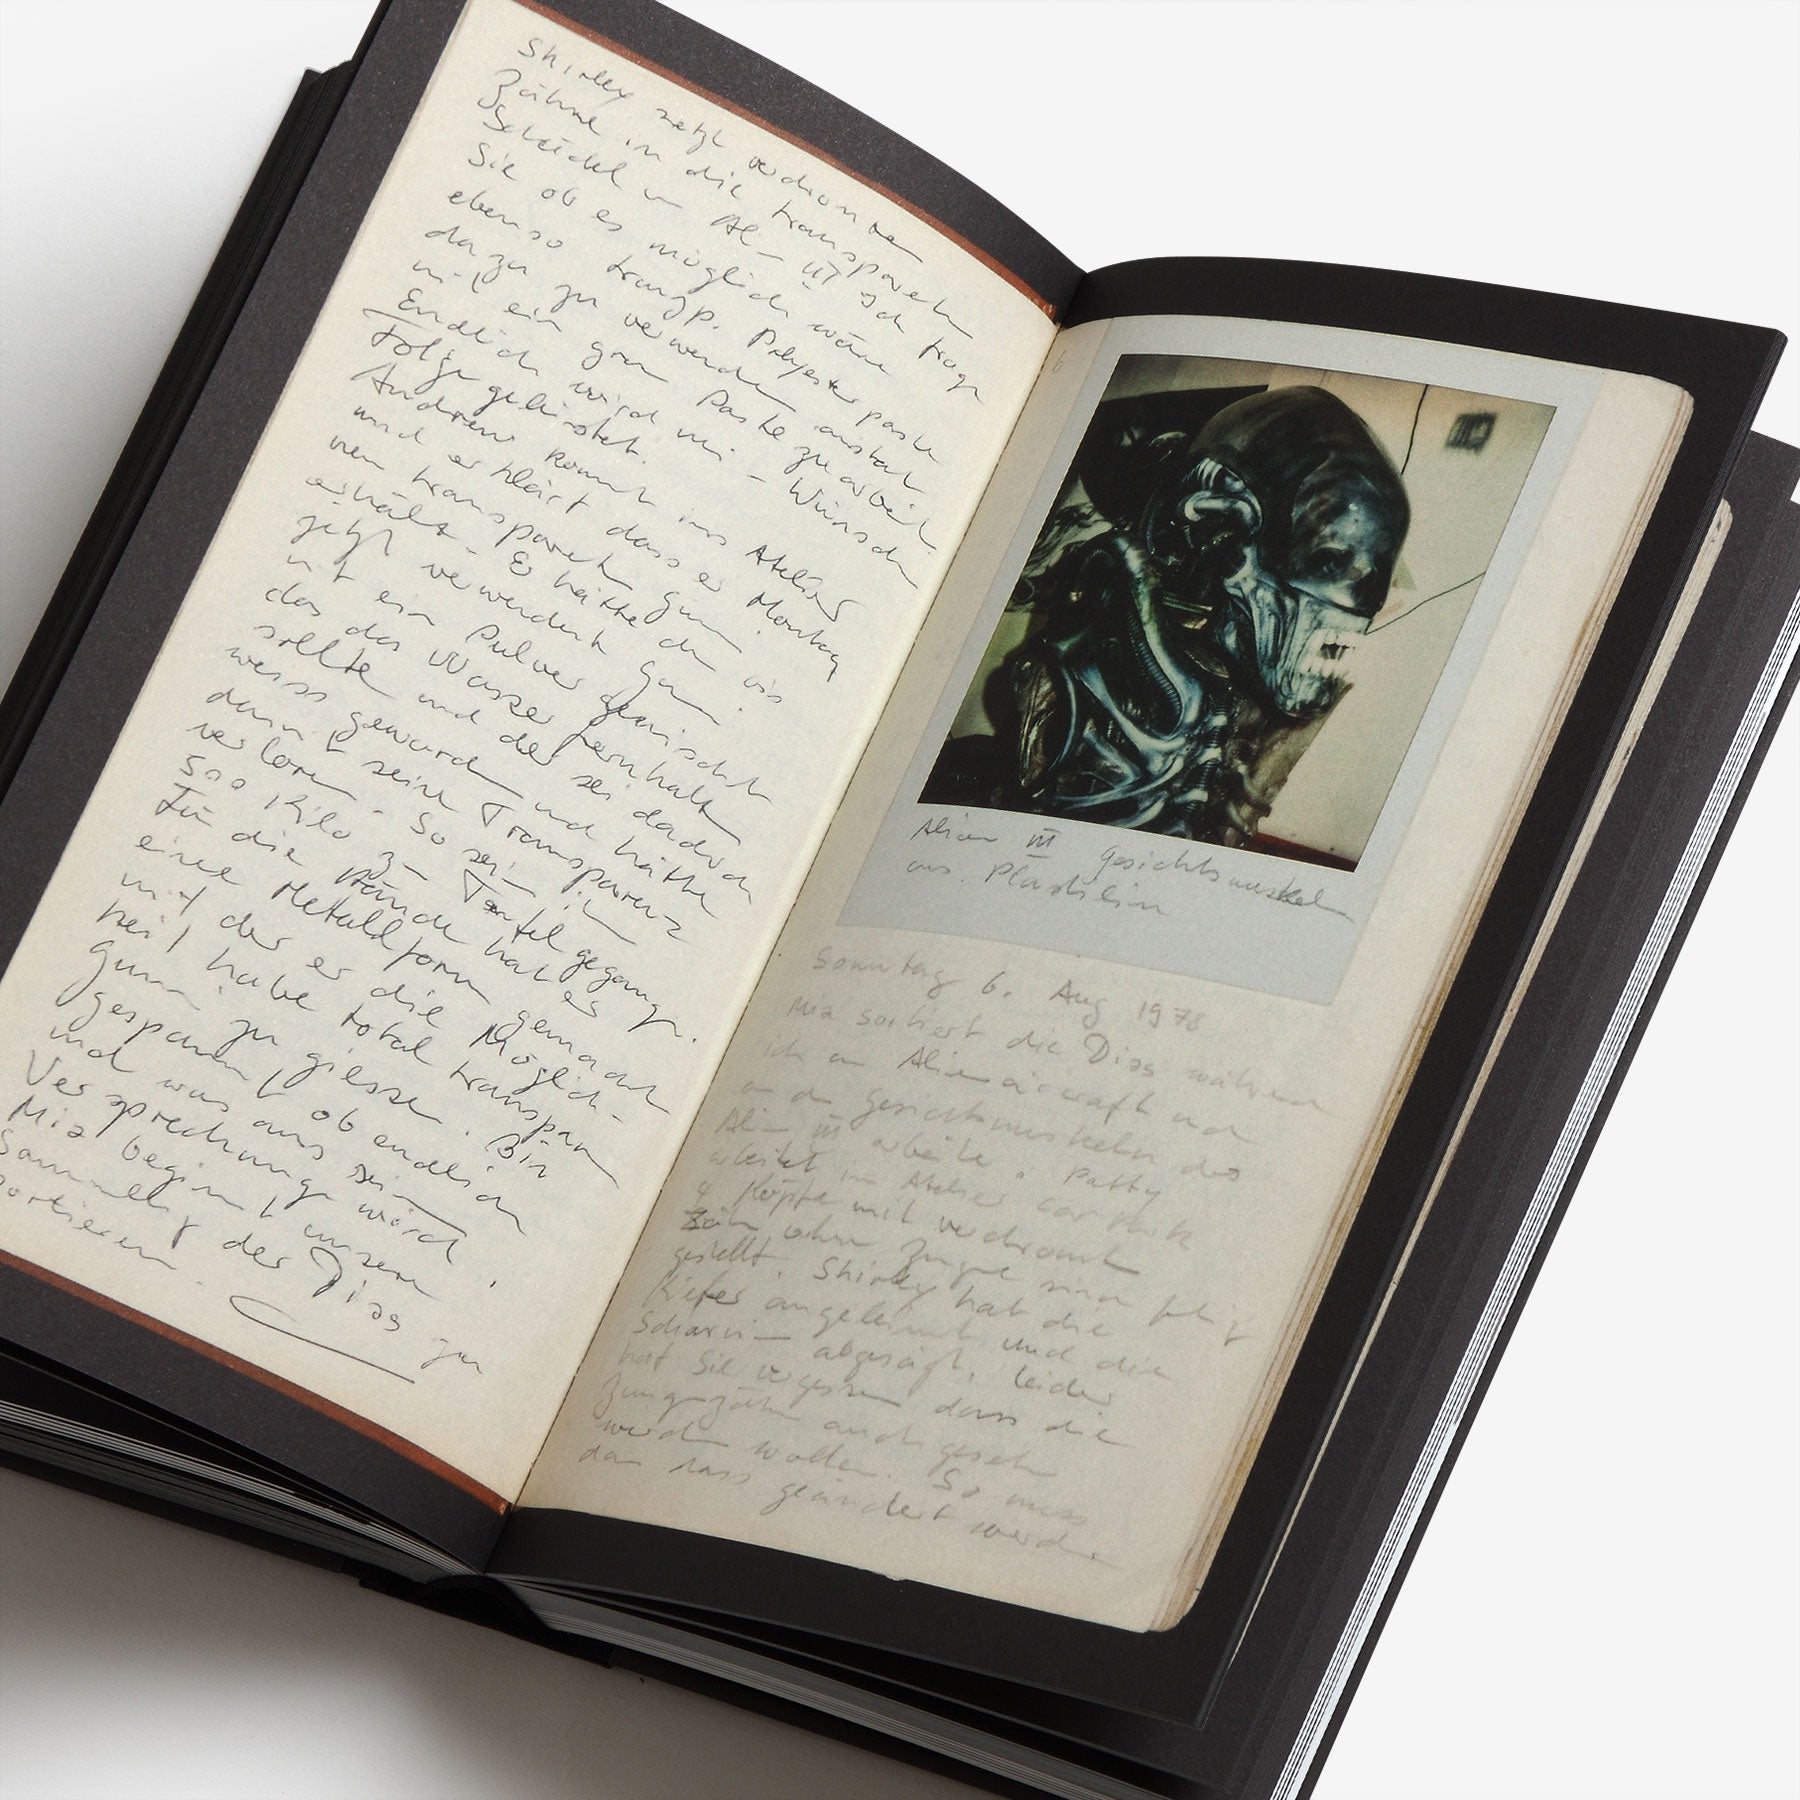 Shirley setzt verchromte
Zähne in die transparenten
Schädel von Alien III ich frage
Sie ob es möglich wäre
ebenso transp. Polyesterpaste
dazu zu verwenden anstatt
mit ein grau Paste zu arbeit.
Endlich wird mein Wunsch
Folge geleistet.
Andrew kommt ins Atelier
und erklärt dass er Montag
nen transparent Gum
erhält. Er hätte den bis
jetzt verwendet Gum
mit ein Pulver gemischt
das das Wasser fernhalt
sollte und der sei dadurch
weiss geword und hätte
damit seine Transparenz
verloren. So sei
500 Kilo zum Teufel gegang.
Für die Hände hat es
eine Metallform gemacht
mit der er die Möglich-
keit habe total transparen
Gum zu giessen. Bin
gespannt ob endlich
und was aus sein
Versprechunge wird.
Mia beginnt unsere
Sammlung der Dias zu
sortieren.
6
Alien III Gesichtsmuskel
aus Plastilin
Sonntag 6. Aug 1978
Mia sortiert die Dias während
ich an Alienaircraft und
an den Gesichtsmuskeln des
Alien III arbeite. Patty
arbeitet im Atelier
4 Köpfe mit verchromt
Zähn ohne Zunge sind fertig
gestellt. Shirley hat die
Kiefer angeleimt und die
Scharni abgesägt, leider
hat Sie vergessen dass die
Zungezähn auch geseh
werden wollen. So muss
dass geändert werde